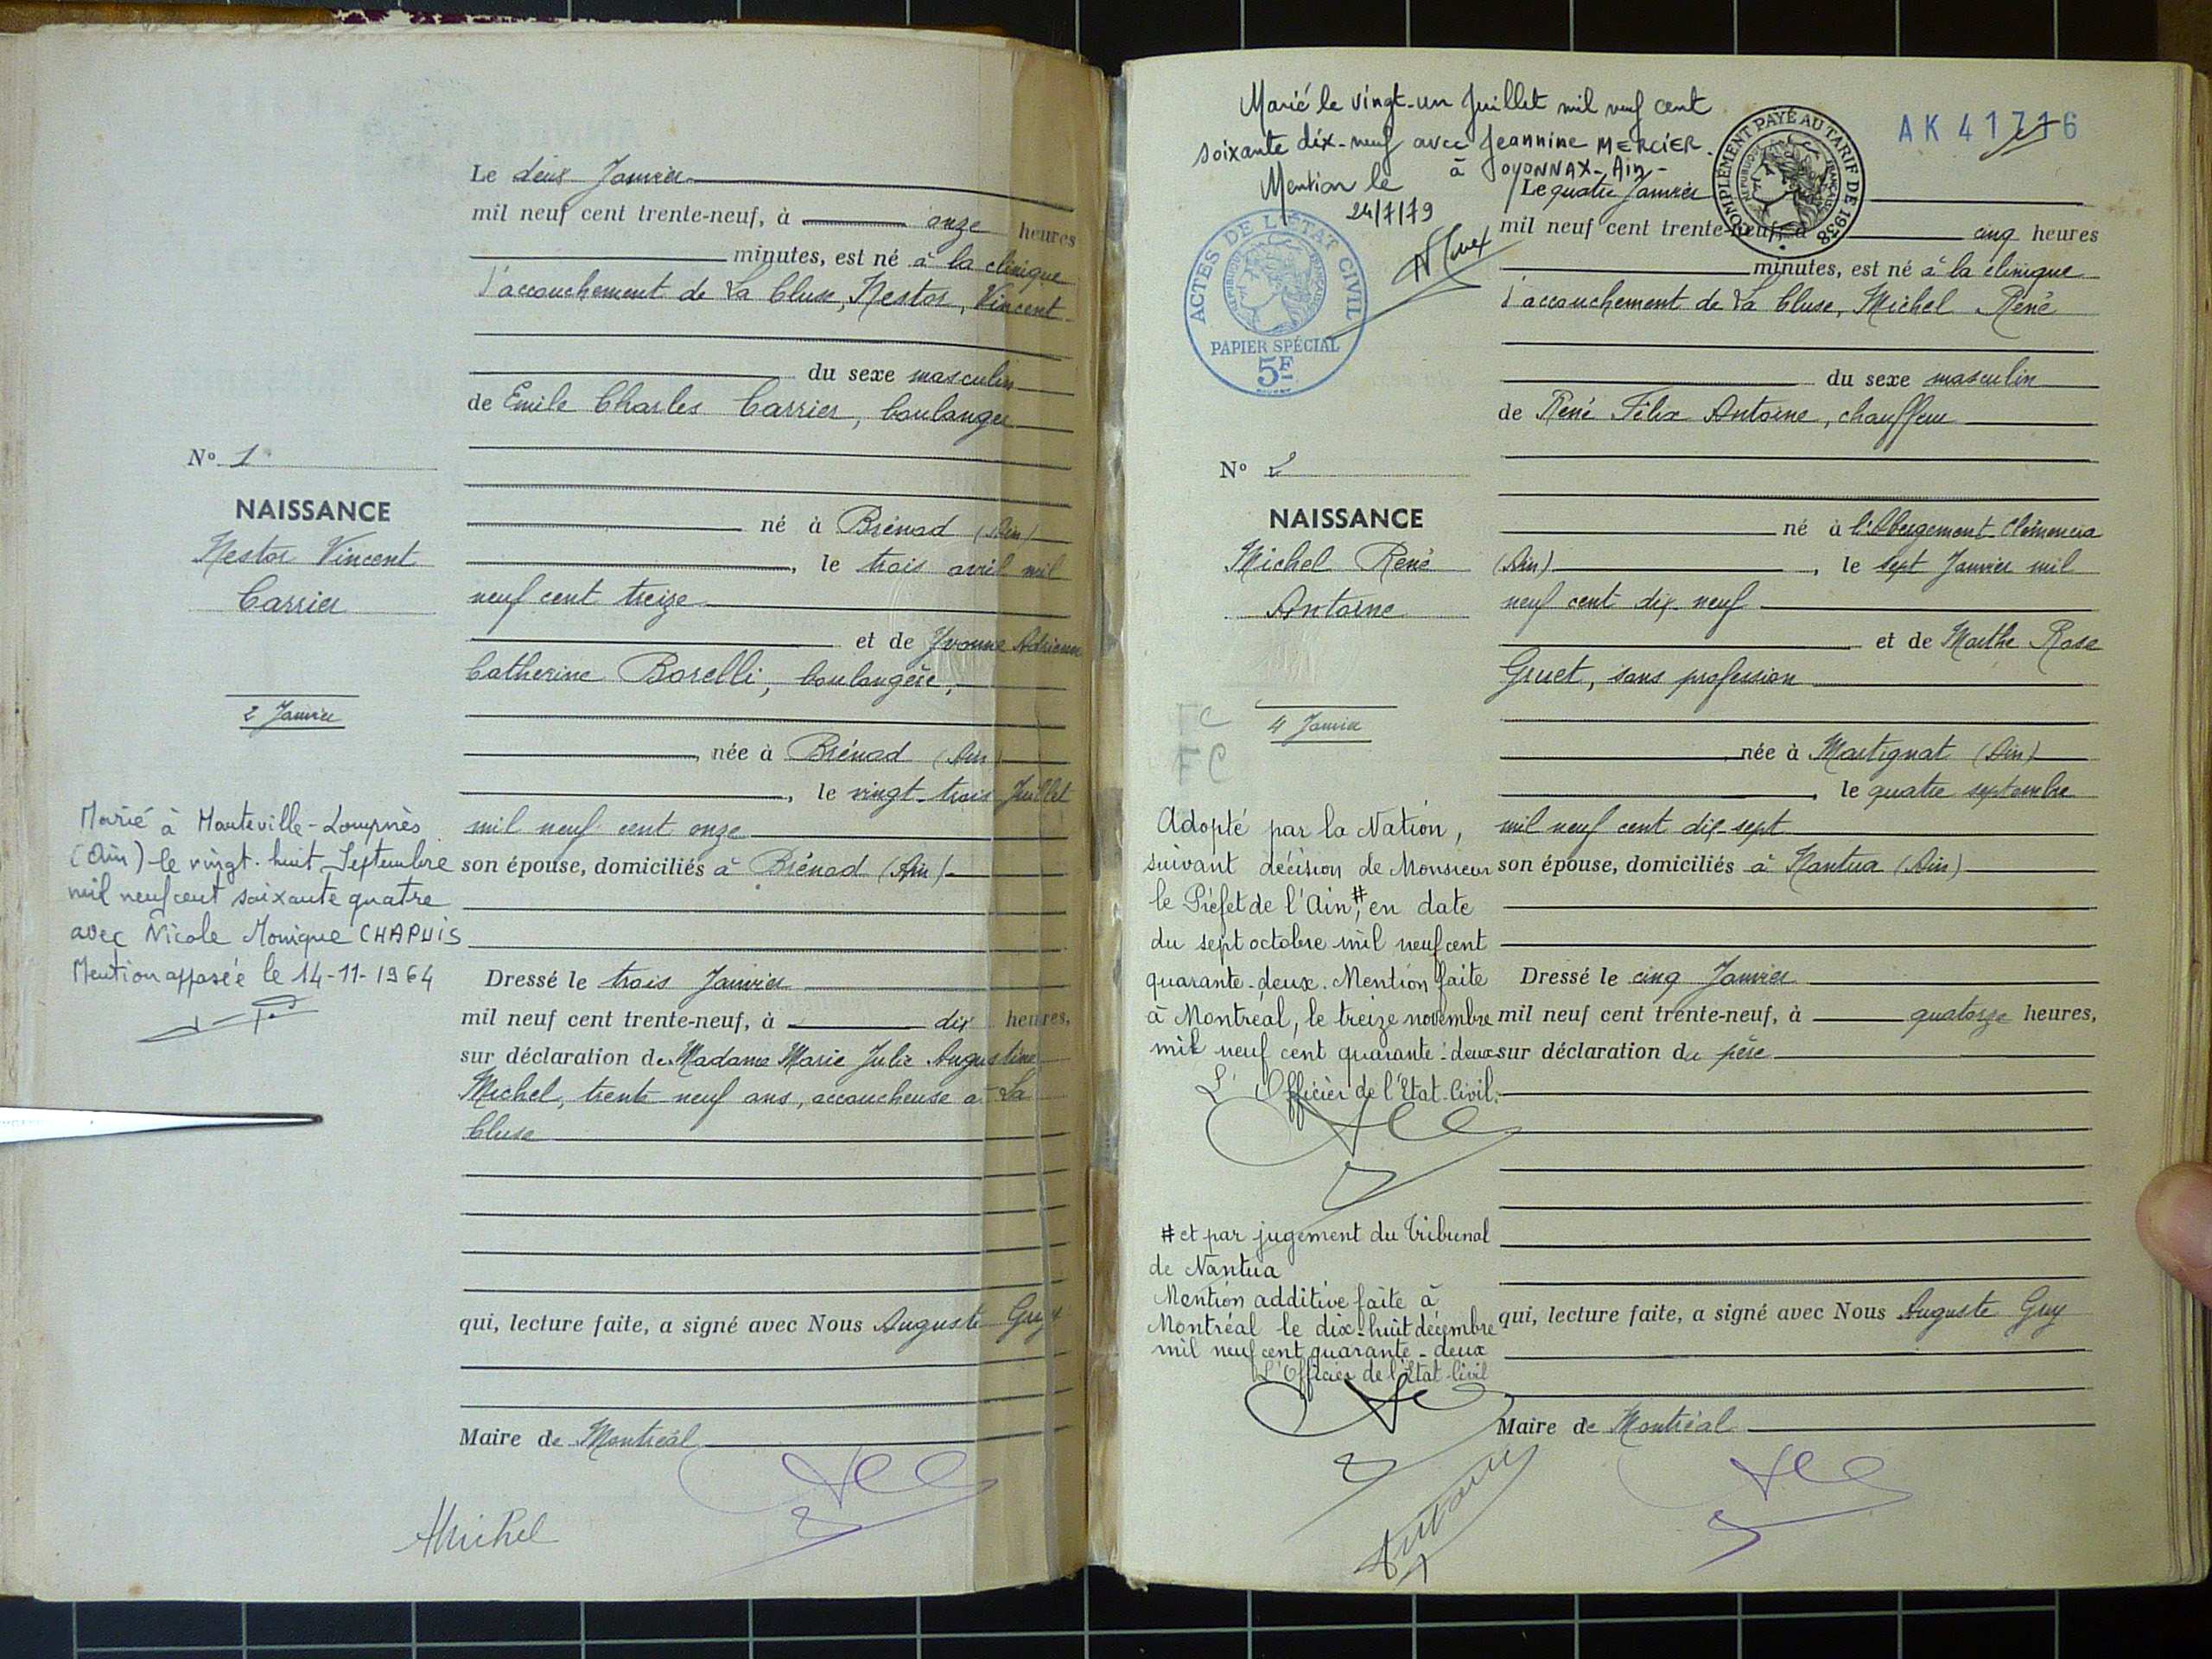 Le deux Janvier
mil neuf cent trente-neuf, à onze heures
minutes, est né à la clinique
d'accouchement de La Cluse, Nestor, Vincent
du sexe masculin
de Emile Charles Carrier, boulanger
né à Brénod (Ain)
, le trois avril mil
neuf cent treize
et de Yvonne Adrienne
Catherine Borelli, boulangère,
, née à Brénod (Ain)
, le vingt-trois Juillet
mil neuf cent onze
son épouse, domiciliés à Brénod (Ain)
Dressé le trois Janvier
mil neuf cent trente-neuf, à dix heures,
sur déclaration de Madame Marie Julie Augustine
Michel, trente neuf ans, accoucheuse à La
Cluse
qui, lecture faite, a signé avec Nous Auguste Guy
Maire de Montréal
AMichel
N° 1
NAISSANCE
Nestor Vincent
Carrier
2 Janvier
Marié à Hauteville-Lompnès
(Ain) le vingt-huit Septembre
mil neuf cent soixante quatre
avec Nicole Monique CHAPUIS
Mention apposée le 14-11-1964
Marié le vingt-un Juillet mil neuf cent
soixante dix-neuf avec Jeannine MERCIER.
à OYONNAX-Ain-
Mention le
24/7/79
ACTES DE L'ÉTAT CIVIL
RÉPUBLIQUE FRANÇAISE
PAPIER SPÉCIAL
5F
COMPLÉMENT PAYÉ AU TARIF DE 1938
RÉPUBLIQUE FRANÇAISE
AK 41716
Le quatre Janvier
mil neuf cent trente-neuf, à cinq heures
minutes, est né à la clinique
d'accouchement de La Cluse, Michel René
du sexe masculin
de René Félix Antoine, chauffeur
né à l'Abergement-Clémencia
(Ain) , le sept Janvier mil
neuf cent dix neuf
et de Marthe Rose
Gruet, sans profession
, née à Martignat (Ain)
, le quatre septembre
mil neuf cent dix sept
son épouse, domiciliés à Nantua (Ain)
Dressé le cinq Janvier
mil neuf cent trente-neuf, à quatorze heures,
sur déclaration du père
qui, lecture faite, a signé avec Nous Auguste Guy
Maire de Montréal
N° 2
NAISSANCE
Michel René
Antoine
FC
4 Janvier
FC
Adopté par la Nation,
suivant décision de Monsieur
le Préfet de l'Ain #, en date
du sept octobre mil neuf cent
quarante-deux. Mention faite
à Montréal, le treize novembre
mil neuf cent quarante-deux
L'Officier de l'Etat-Civil.
# et par jugement du Tribunal
de Nantua
Mention additive faite à
Montréal le dix-huit décembre
mil neuf cent quarante-deux
L'Officier de l'Etat-Civil
Antoine